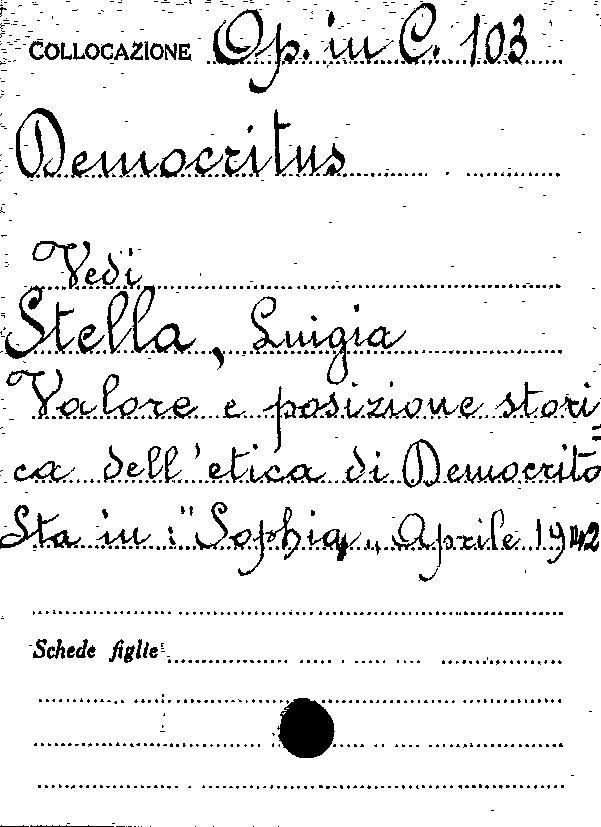 COLLOCAZIONE Op. in C. 103
Democritus
Vedi
Stella, Luigia
Valore e posizione stori=
ca dell'etica di Democrito
Sta in: "Sophia„ Aprile 1942
Schede figlie: